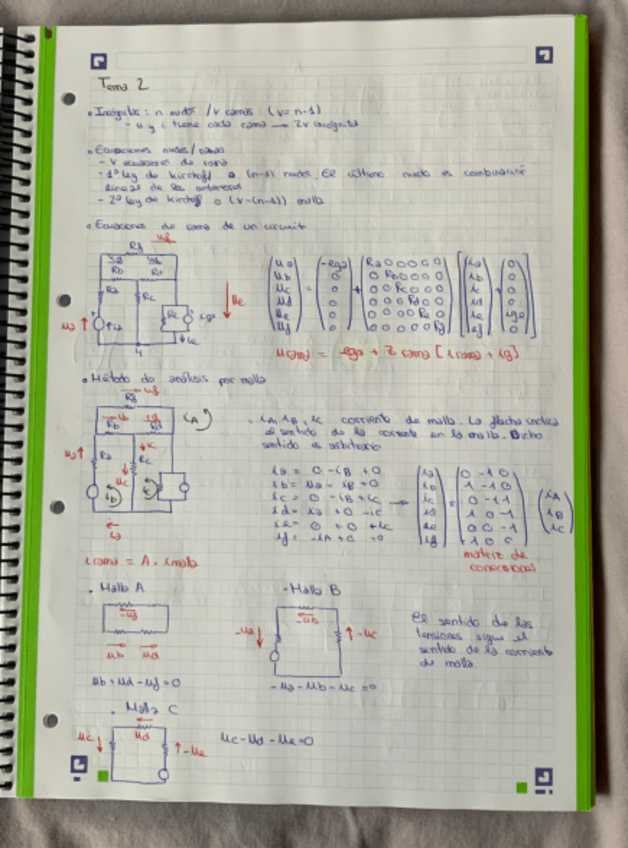 Tema 2
• Incógnitas: n nudos / v ramas (v= n-1)
- u y i tiene cada rama → 2v incógnita
• Ecuaciones nudos/ramas
- v ecuaciones de rama
- 1ª ley de kirchoff a (n-1) nudos. El último nudo es combinación
lineal de los anteriores
- 2ª ley de kirchoff a (v-(n-1)) malla
• Ecuaciones de rama de un circuito
uf
Rf
Rb Rd
Ra Rc
ua
Re ige
ue
ie
ua ub uc ud ue uf
-ega 0 0 0 0 0
Ra 0 0 0 0 0
0 Rb 0 0 0 0
0 0 Rc 0 0 0
0 0 0 Rd 0 0
0 0 0 0 Re 0
0 0 0 0 0 Rf
ia ib ic id ie if
0 0 0 0 ige 0
urama = ega + Z rama [irama + ig]
• Método de análisis por malla
Rf uf
iA
ub ud
Rb Rd
ua Ra ic
uc Rc
iB
ia
· iA, iB, ic corriente de malla. La flecha indica
el sentido de la corriente en la malla. Dicho
sentido es arbitrario
ia = 0 -iB +0
ic = 0 -iB +ic
ie = 0 +0 +ic
if = -iA +0 +0
0 -1 0
1 -1 0
0 -1 1
1 0 -1
0 0 -1
iA iB ic
matriz de
conexiones
irama = A · imalla
· Malla A
-uf
ub ud
ub + ud - uf = 0
· Malla B
-ub
-ua -uc
-ua - ub - uc = 0
El sentido de las
tensiones sigue el
sentido de la corriente
de malla
· Malla C
ud
uc -ue
uc - ud - ue = 0